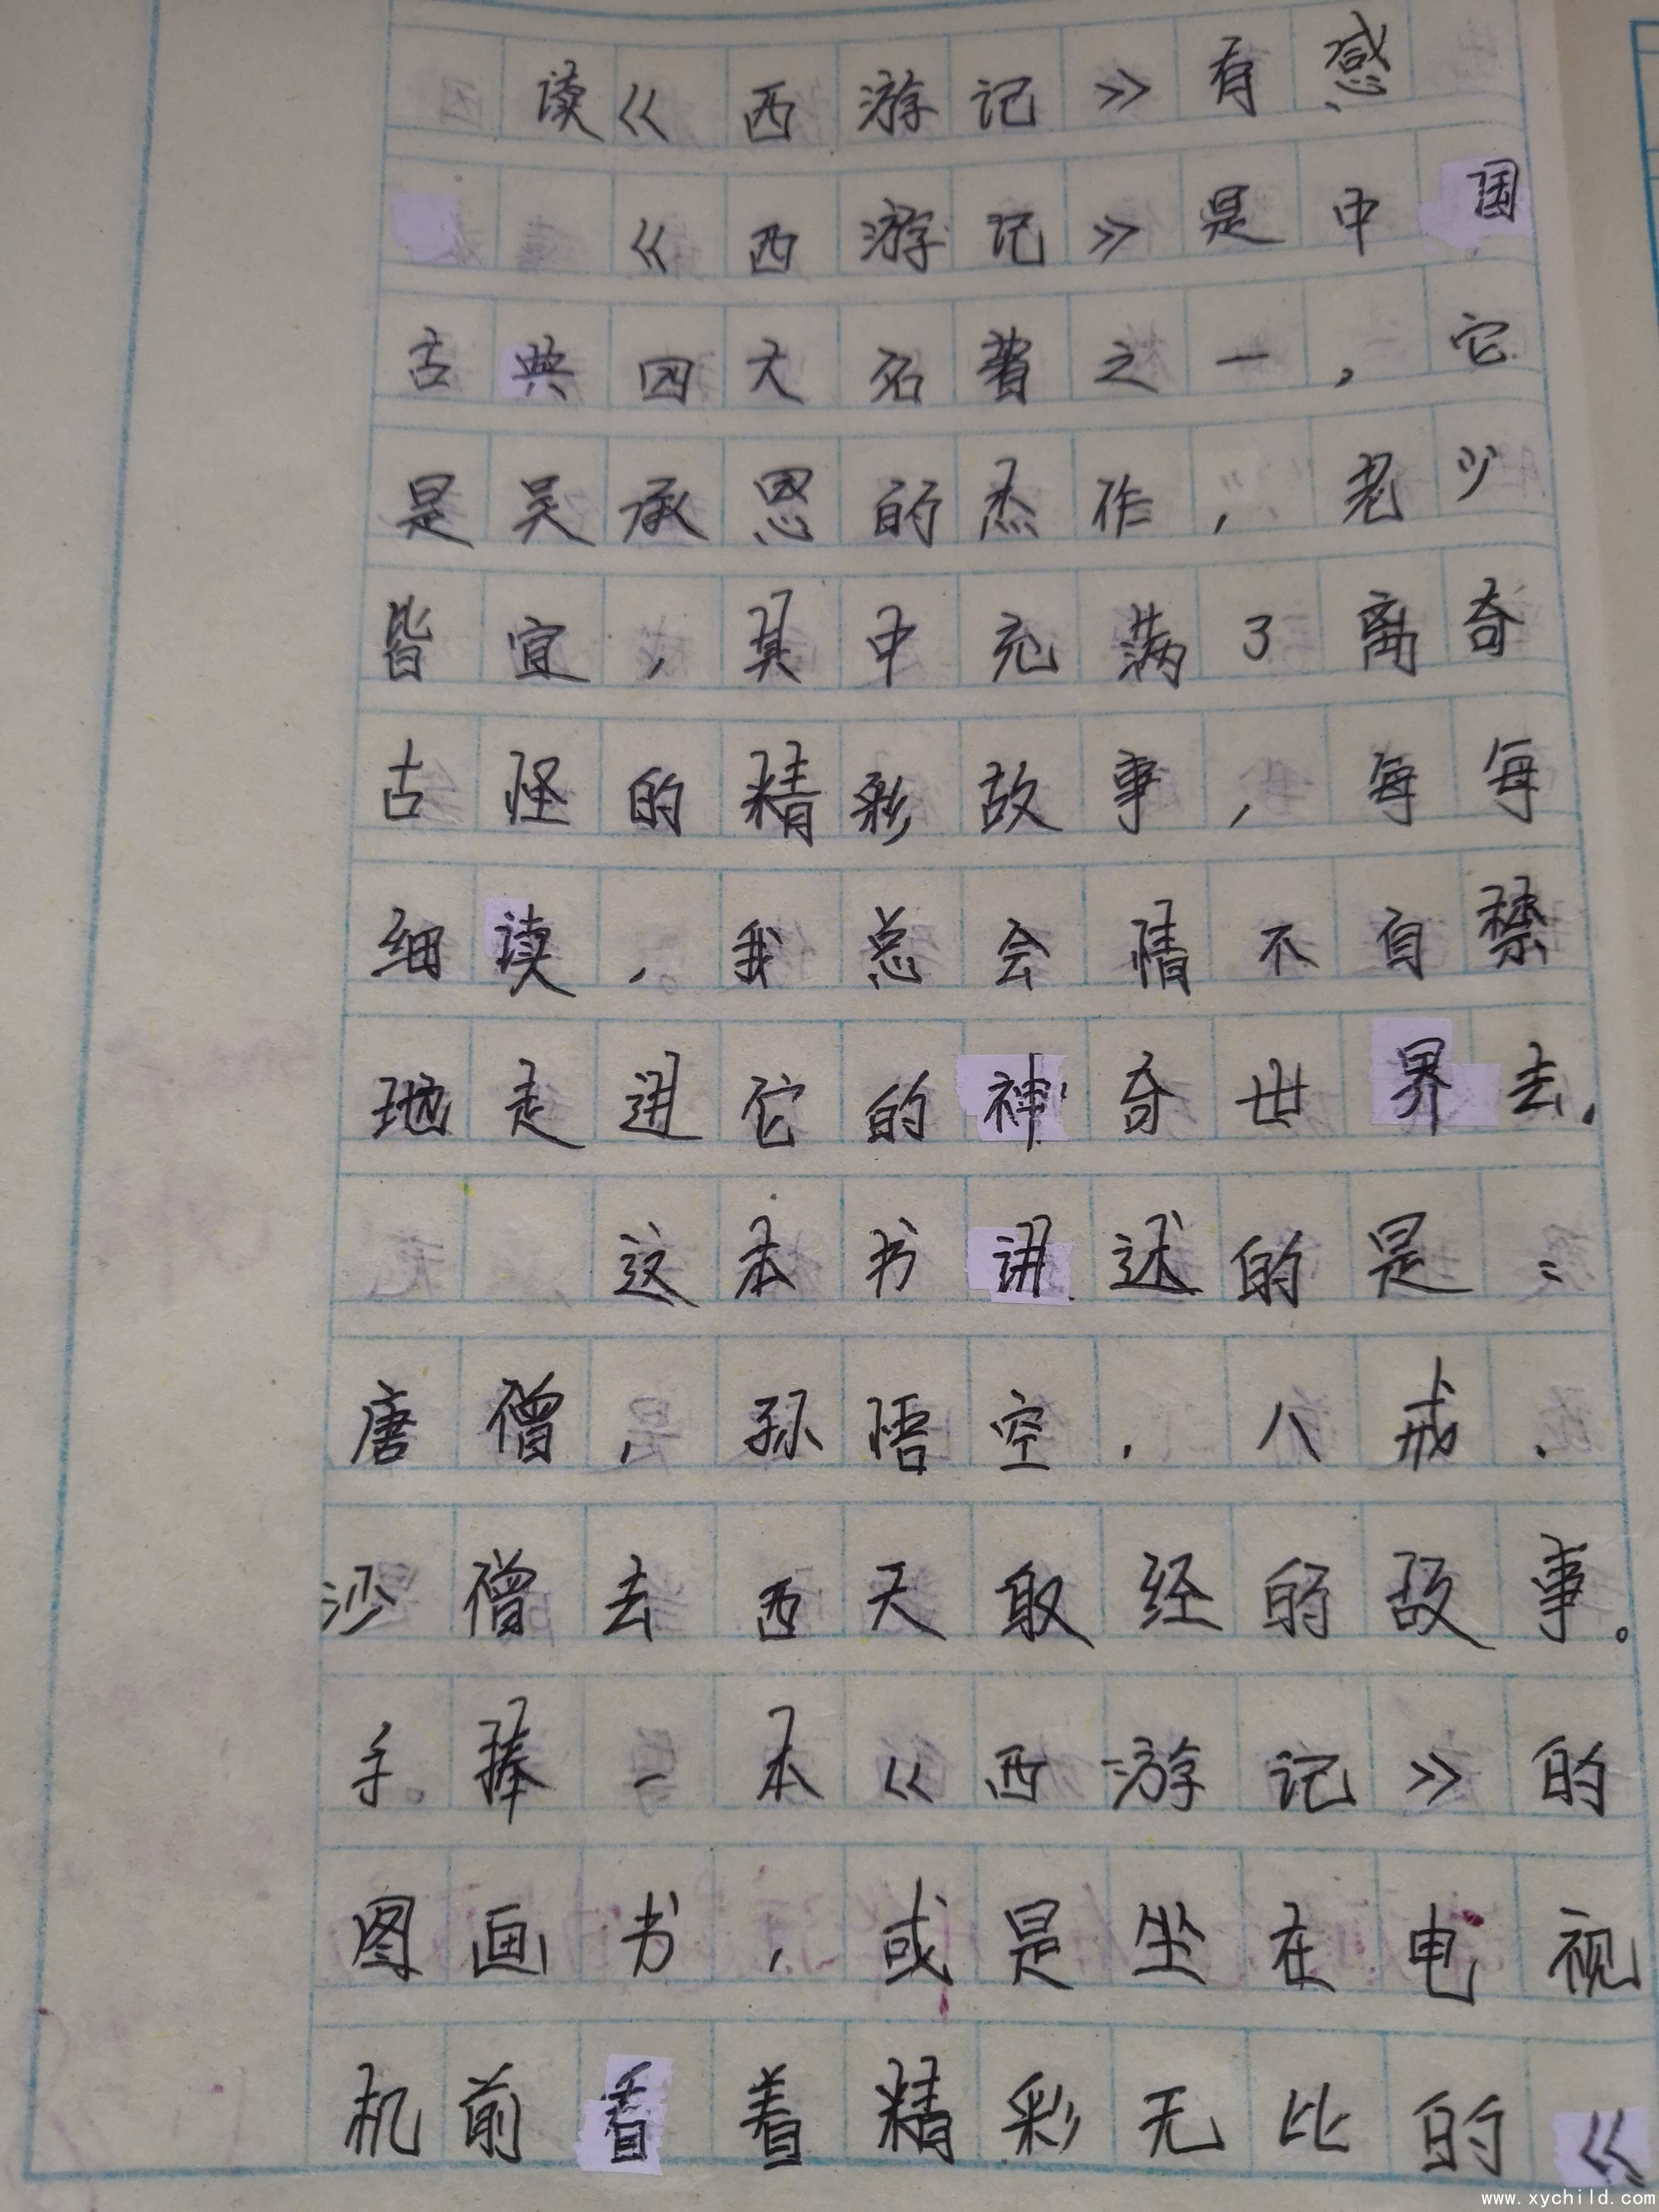 读《西游记》有感
《西游记》是中国
古典四大名著之一，它
是吴承恩的杰作，老少
皆宜，其中充满了离奇
古怪的精彩故事，每每
细读，我总会情不自禁
地走进它的神奇世界去，
这本书讲述的是：
唐僧，孙悟空，八戒、
沙僧去西天取经的故事。
手捧一本《西游记》的
图画书，或是坐在电视
机前看着精彩无比的《
www.xychild.com